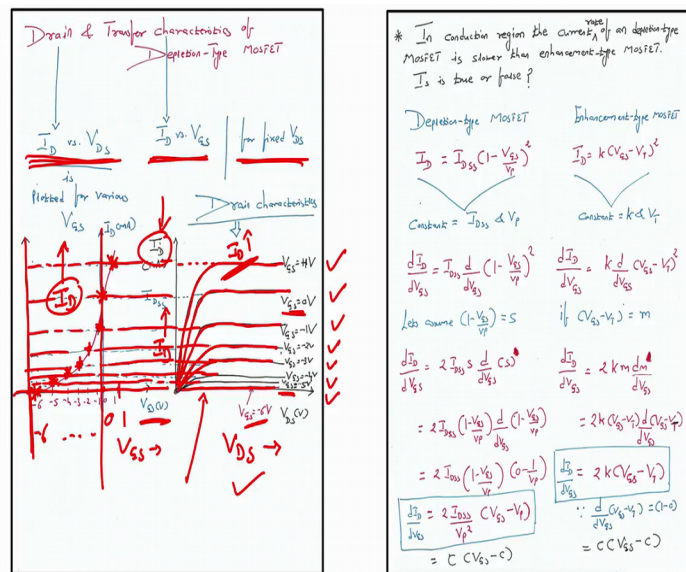 Drain & Transfer characteristics of
Depletion-Type MOSFET
I_D vs. V_DS
I_D vs. V_GS
for fixed V_DS
is
Plotted for various
V_GS
Drain characteristics
I_D(mA)
I_D
I_D
I_D↑
I_D
I_DSS
V_GS=+1V
V_GS=0V
-1V
-2V
-3V
V_GS=-5V
-6 -5 -4 -3 -2 -1 0 1
V_GS=-6V
V_DS(V)
0 1
V_GS →
V_DS →
* In conduction region the current rate of an depletion-type
MOSFET is slower than enhancement-type MOSFET.
Is true or false?
Depletion-type MOSFET
I_D = I_DSS (1-V_GS/V_P)^2
Constant = I_DSS & V_P
dI_D/dV_GS = I_DSS d/dV_GS (1-V_GS/V_P)^2
Lets assume (1-V_GS/V_P) = S
dI_D/dV_GS = 2 I_DSS S d/dV_GS (S)
= 2 I_DSS (1-V_GS/V_P) d/dV_GS (1-V_GS/V_P)
= 2 I_DSS (1-V_GS/V_P) (0-1/V_P)
= 2 I_DSS/V_P^2 (V_GS-V_P)
= C (V_GS-C)
Enhancement-type MOSFET
I_D = k (V_GS-V_T)^2
Constant = k & V_T
dI_D/dV_GS = k d/dV_GS (V_GS-V_T)^2
if (V_GS-V_T) = m
dI_D/dV_GS = 2 k m dm/dV_GS
= 2k (V_GS-V_T) d/dV_GS (V_GS-V_T)
dI_D/dV_GS = 2k (V_GS-V_T)
∵ d/dV_GS (V_GS-V_T) = (1-0)
= C (V_GS-C)